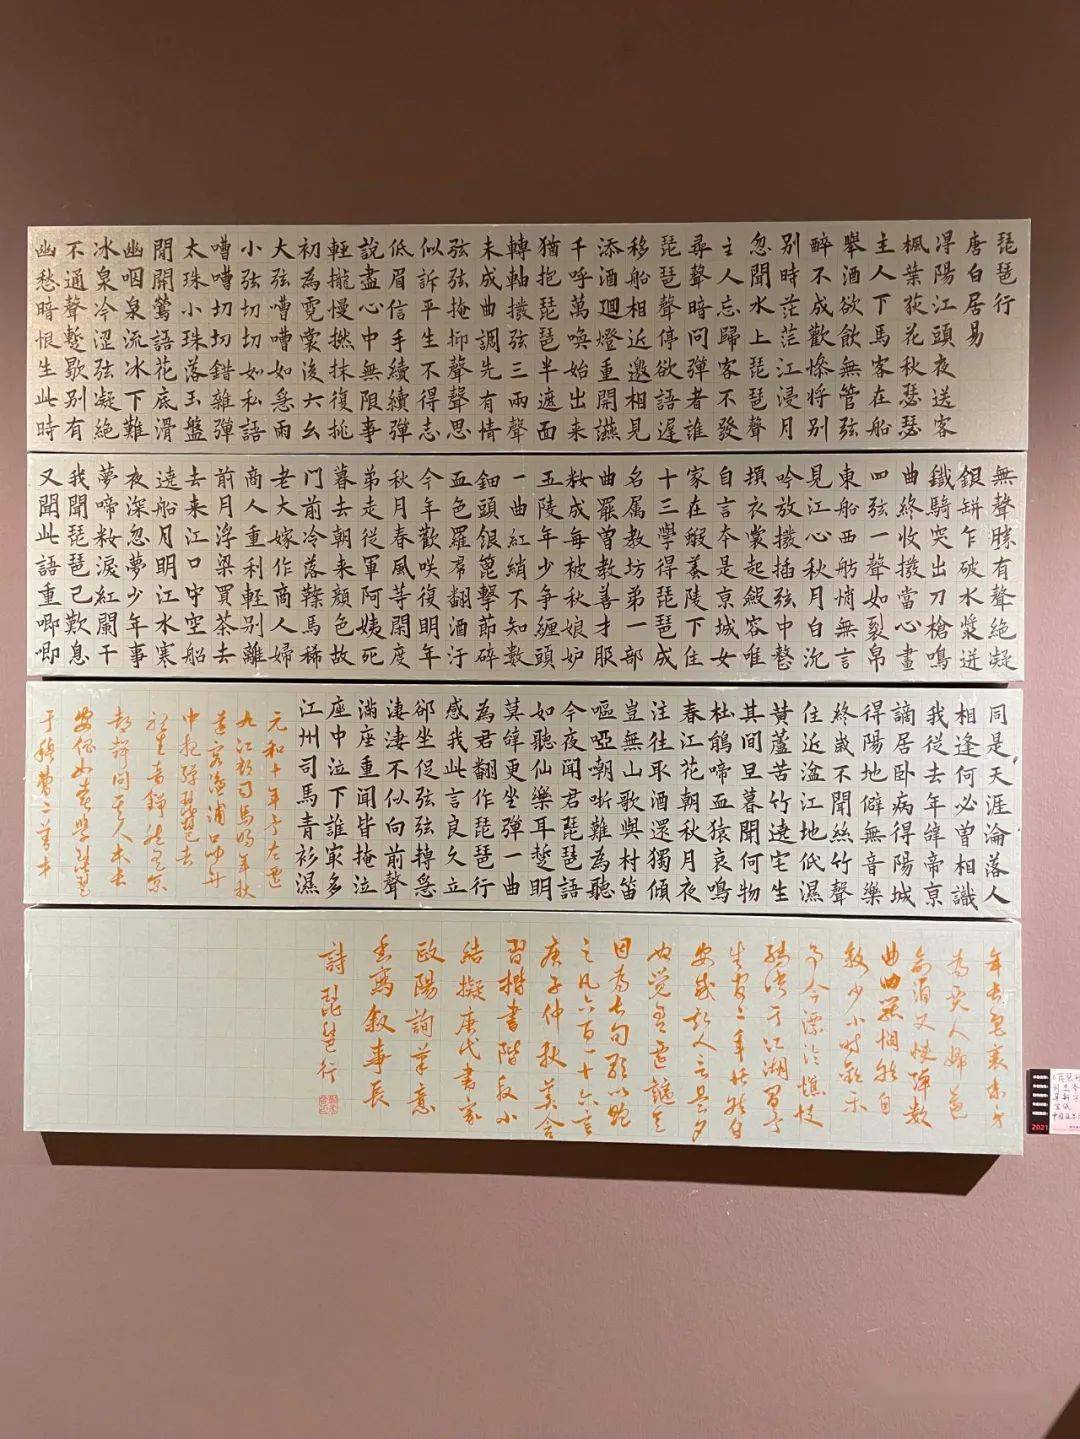 琵琶行
唐白居易
潯陽江頭夜送客
楓葉荻花秋瑟瑟
主人下馬客在船
舉酒欲飲無管弦
醉不成歡慘將別
別時茫茫江浸月
忽聞水上琵琶聲
主人忘歸客不發
尋聲暗問彈者誰
琵琶聲停欲語遲
移船相近邀相見
添酒迴燈重開讌
千呼萬喚始出来
猶抱琵琶半遮面
轉軸撥弦三兩聲
未成曲調先有情
弦弦掩抑聲聲思
似訴平生不得志
低眉信手續續彈
說盡心中無限事
輕攏慢撚抹復挑
初為霓裳後六幺
大弦嘈嘈如急雨
小弦切切如私語
嘈嘈切切錯雜彈
太珠小珠落玉盤
閒開鶯語花底滑
幽咽泉流冰下難
冰泉冷澀弦凝絕
不通聲蹔歇別有
幽愁暗恨生此時
無聲勝有聲絕凝
銀缾乍破水漿迸
鐵騎突出刀槍鳴
曲終收撥當心畫
四弦一聲如裂帛
東船西舫悄無言
見江心秋月白沉
吟放撥插弦中整
損衣裳起斂容唯
自言本是京城女
家在蝦蟇陵下住
十三學得琵琶成
名属教坊弟一部
曲罷曾教善才服
粧成每被秋娘妒
五陵年少爭纏頭
一曲紅綃不知數
鈿頭銀篦擊節碎
血色羅帬翻酒汙
今年歡咲復明年
秋月春風等閑度
弟走從軍阿姨死
暮去朝来顏色故
門前冷落鞍馬稀
老大嫁作商人婦
商人重利輕別離
前月浮梁買茶去
去来江口守空船
遶船月明江水寒
夜深忽夢少年事
夢啼粧淚紅闌干
我聞琵琶已歎息
又聞此語重唧唧
同是天涯淪落人
相逢何必曾相識
我從去年辞帝京
謫居卧病潯陽城
潯陽地僻無音樂
終歲不聞絲竹聲
住近湓江地低濕
黃蘆苦竹遶宅生
其間旦暮聞何物
杜鵑啼血猿哀鳴
春江花朝秋月夜
注往取酒還獨傾
豈無山歌與村笛
嘔啞嘲哳難為聽
今夜聞君琵琶語
如聽仙樂耳蹔明
莫辞更坐彈一曲
為君翻作琵琶行
感我此言良久立
卻坐促弦弦轉急
淒淒不似向前聲
滿座重聞皆掩泣
座中泣下誰家多
江州司馬青衫濕
元和十年予左遷
九江郡司馬明年秋
送客湓浦口聞舟
中夜彈琵琶者
聽其音錚然有京
都聲問其人本長
安倡女嘗學琵琶
于穆曹二善才
年長色衰委身
為賈人婦遂
命酒使快彈數
曲曲罷憫然自
敘少小時歡樂
事今漂淪憔悴
轉徙于江湖間予
出官二年恬然自
安感斯人言是夕
始覺有遷謫意
因為長句歌以贈
之凡六百一十六言
庚子仲秋吴合
習楷書階段小
結擬唐代書家
歐陽詢筆意
書寫敘事長
詩琵琶行
2021